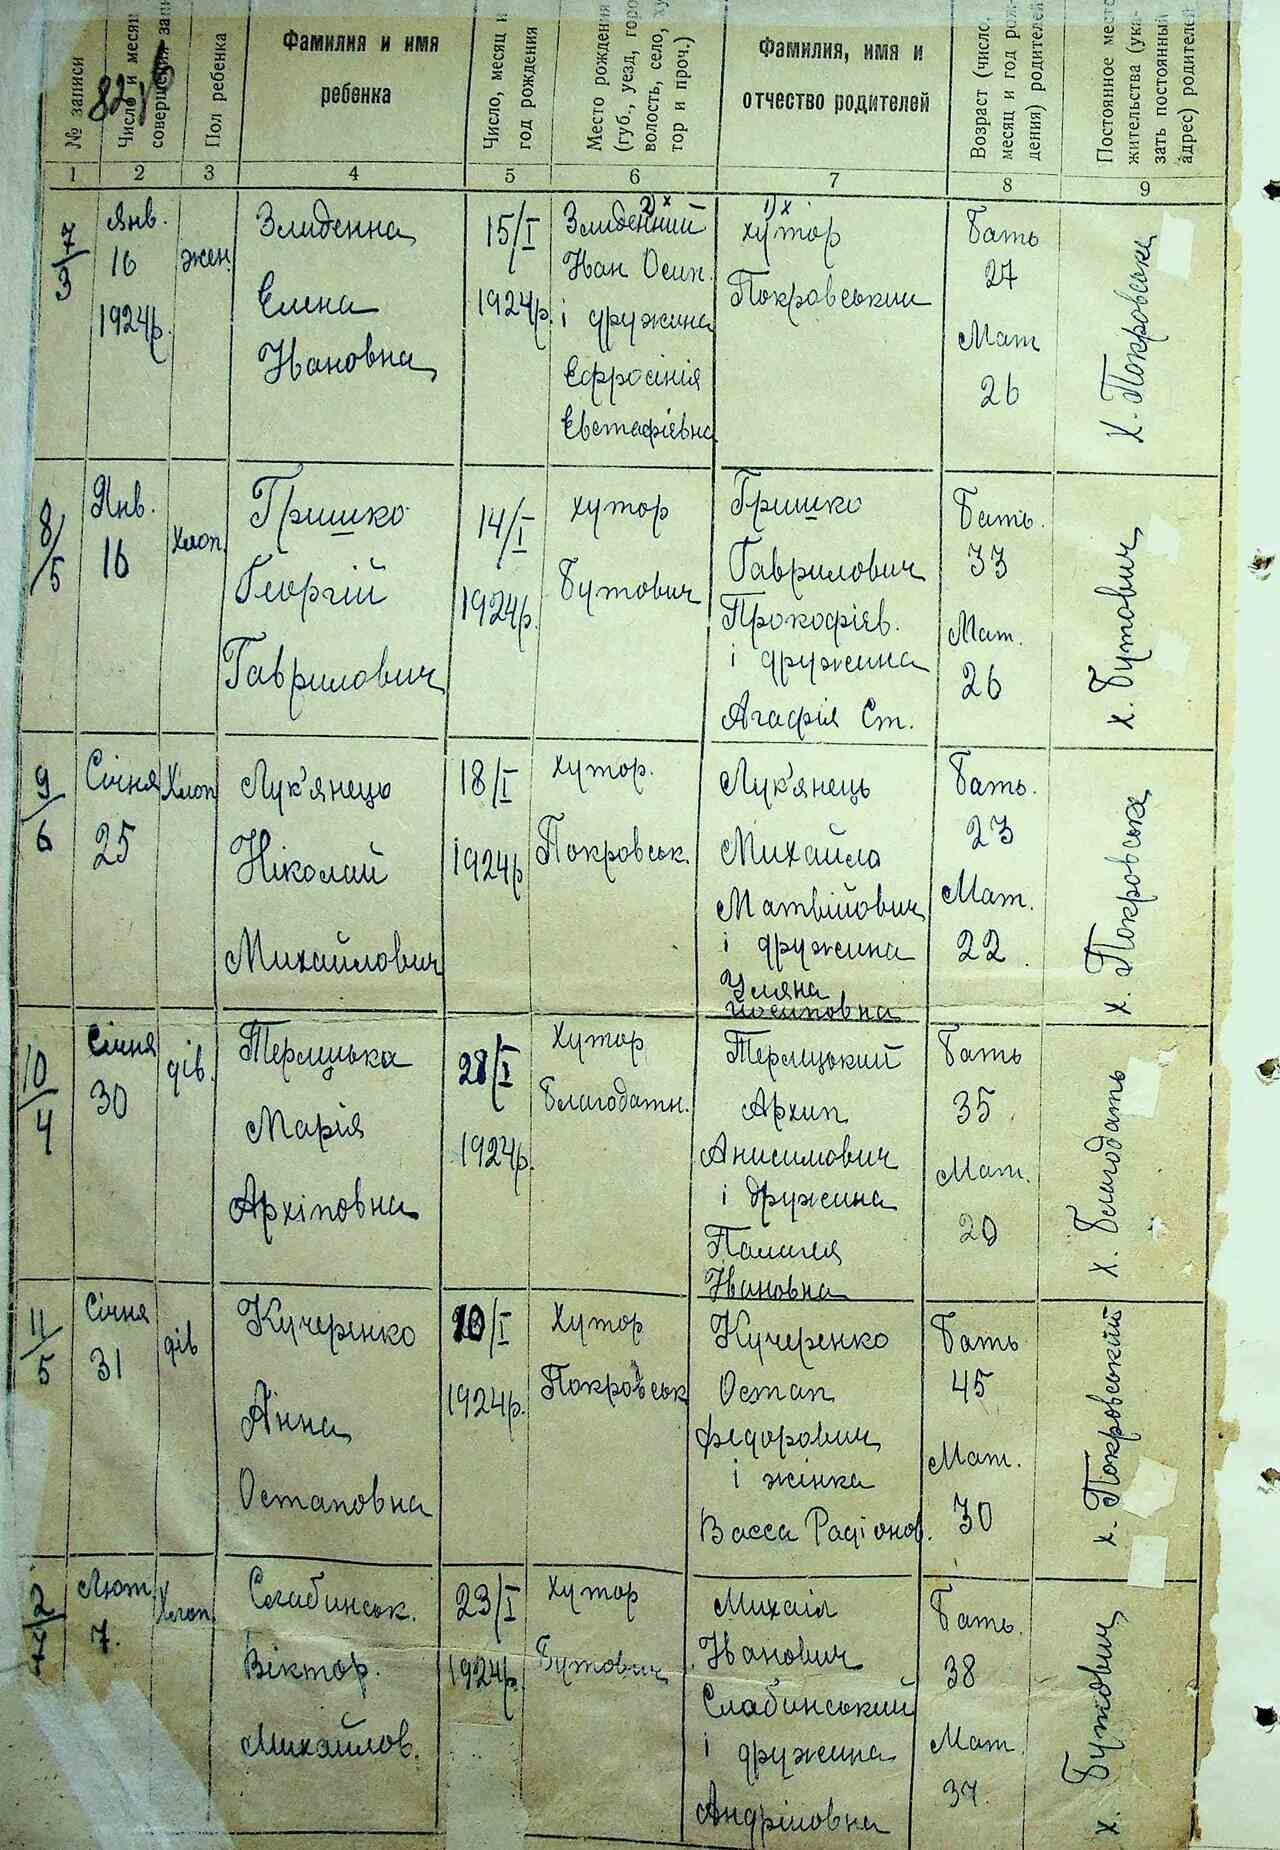 № записи
Число и месяц
совершения запи
82
Пол ребенка
Фамилия и имя
ребенка
Число, месяц и
год рождения
Место рождения
(губ., уезд, горо
волость, село, ху
тор и проч.)
Фамилия, имя и
отчество родителей
Возраст (число,
месяц и год рож-
дения) родителей
Постоянное место
жительства (ука-
зать постоянный
адрес) родителей
1
2
3
4
5
6
7
8
9
7/3
Янв.
16
1924р.
жен.
Злиденна
Елена
Ивановна
15/I
1924р.
2) х
Злиденний
Иван Осип.
і дружина
Єфросінія
Евстафієвна
1) х
хутор
Покровський
Бать
27
Мат
26
х. Покровське
8/5
Янв.
16
Хлоп.
Гришко
Георгій
Гаврилович
14/I
1924р.
хутор
Бутович
Гришко
Гаврилович
Прокофієв.
і дружина
Агафія Ст.
Бать.
33
Мат.
26
х. Бутович
9/6
Січня
25
Хлоп
Лук'янець
Ніколай
Михайлович
18/I
1924р
хутор.
Покровськ.
Лук'янець
Михайло
Матвійович
і дружина
Уляна
Йосиповна
Бать.
23
Мат.
22
х. Покровське
10/4
Січня
30
дів.
Терлицька
Марія
Архіповна
28/I
1924р.
Хутор
Благодатн.
Терлицький
Архип
Анисимович
і дружина
Палагея
Івановна
Бать
35
Мат.
20
х. Благодать
11/5
Січня
31
дів
Кучеренко
Анна
Остаповна
/I
1924р.
Хутор
Покровськ
Кучеренко
Остап
Федорович
і жінка
Васса Радіонов.
Бать
45
Мат.
30
х. Покровський
Лют.
7.
Хлоп.
Слабинськ.
Віктор.
Михайлов.
23/I
1924р.
Хутор
Бутович
Михаіл
Иванович
Слабинський
і дружина
Андріївна
Бать.
38
Мат.
37.
х. Бутович